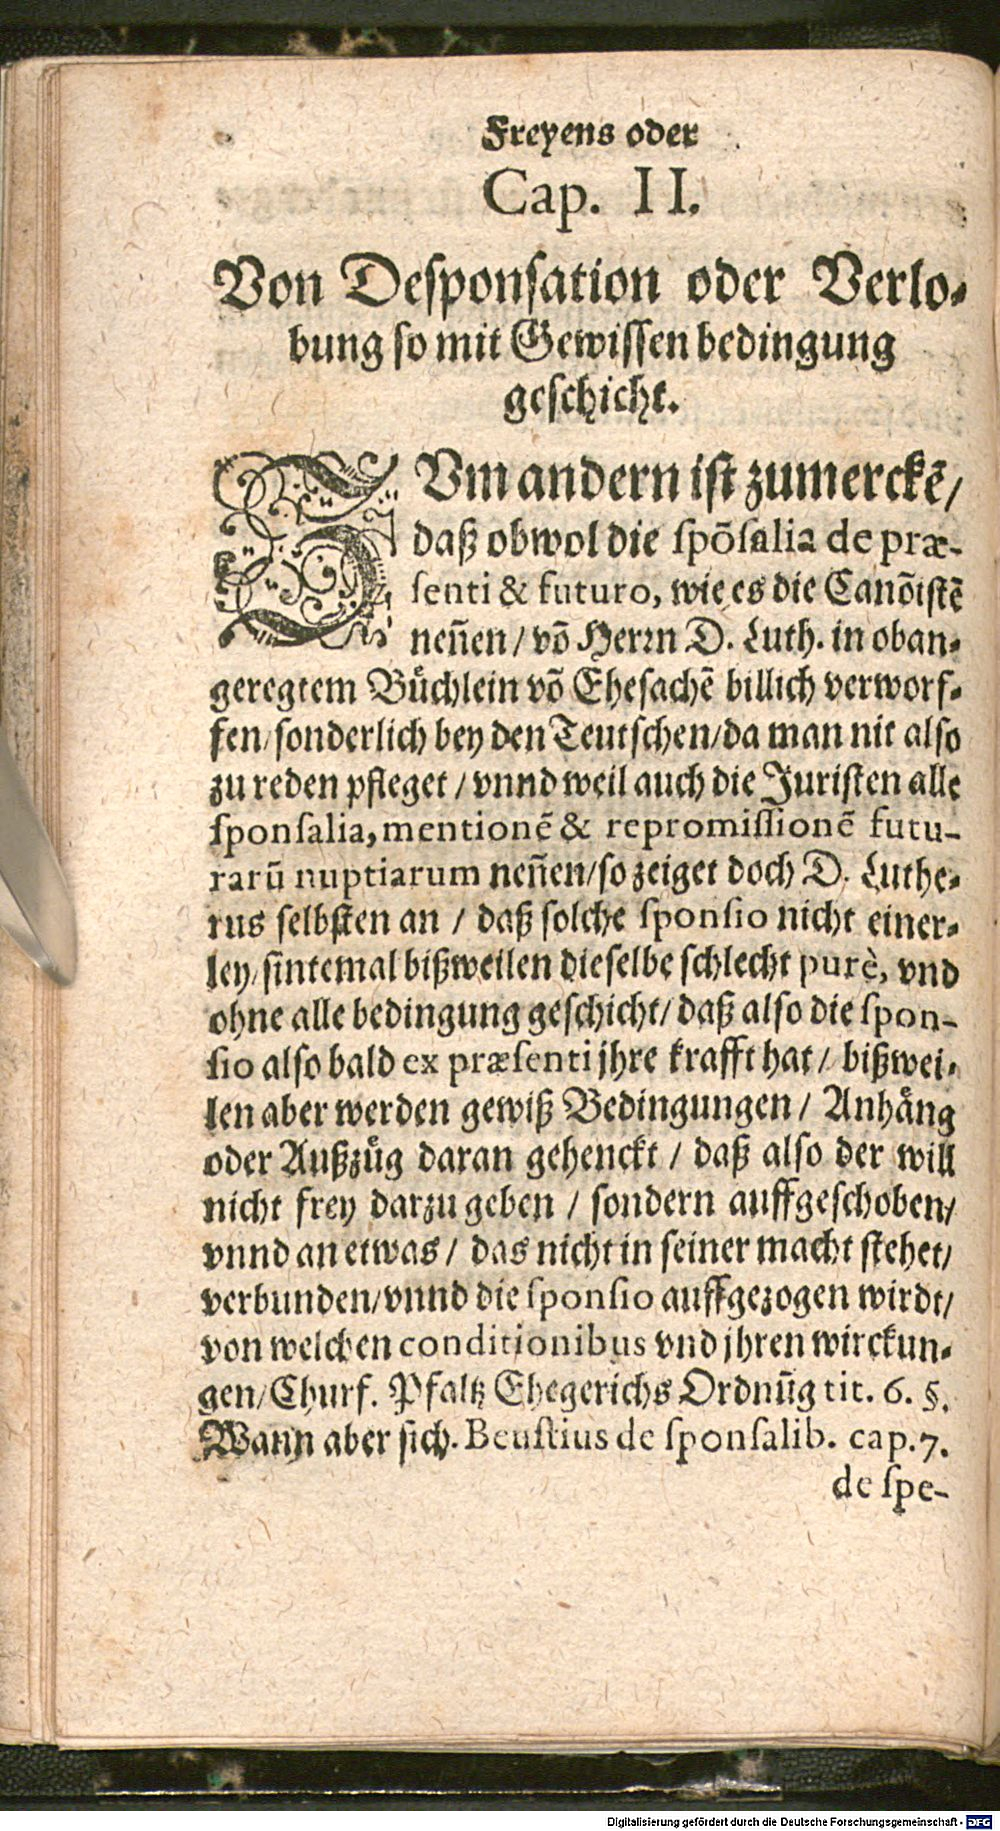 Freyens oder
Cap. II.
Von Desponsation oder Verlo-
bung so mit Gewissen bedingung
geschicht.
ZVm andern ist zumerckẽ/
daß obwol die spõsalia de præ-
senti & futuro, wie es die Canõistẽ
neñen / võ Herrn D. Luth. in oban-
geregtem Bůchlein võ Ehesachẽ billich verworf-
fen/sonderlich bey den Teutschen/da man nit also
zu reden pfleget / vnnd weil auch die Juristen alle
sponsalia, mentionẽ & repromissionẽ futu-
rarũ nuptiarum neñen/so zeiget doch D. Luthe-
rus selbsten an / daß solche sponsio nicht einer-
ley/sintemal bißweilen dieselbe schlecht purè, vnd
ohne alle bedingung geschicht/ daß also die spon-
sio also bald ex præsenti jhre krafft hat / bißwei-
len aber werden gewiß Bedingungen / Anhång
oder Außzůg daran gehenckt / daß also der will
nicht frey darzu geben / sondern auffgeschoben/
vnnd an etwas / das nicht in seiner macht stehet/
verbunden/vnnd die sponsio auffgezogen wirdt/
von welchen conditionibus vnd jhren wirckun-
gen/Churf. Pfaltz Ehegerichs Ordnũg tit. 6. §.
Wann aber sich. Beustius de sponsalib. cap. 7.
de spe-
Digitalisierung gefördert durch die Deutsche Forschungsgemeinschaft - DFG